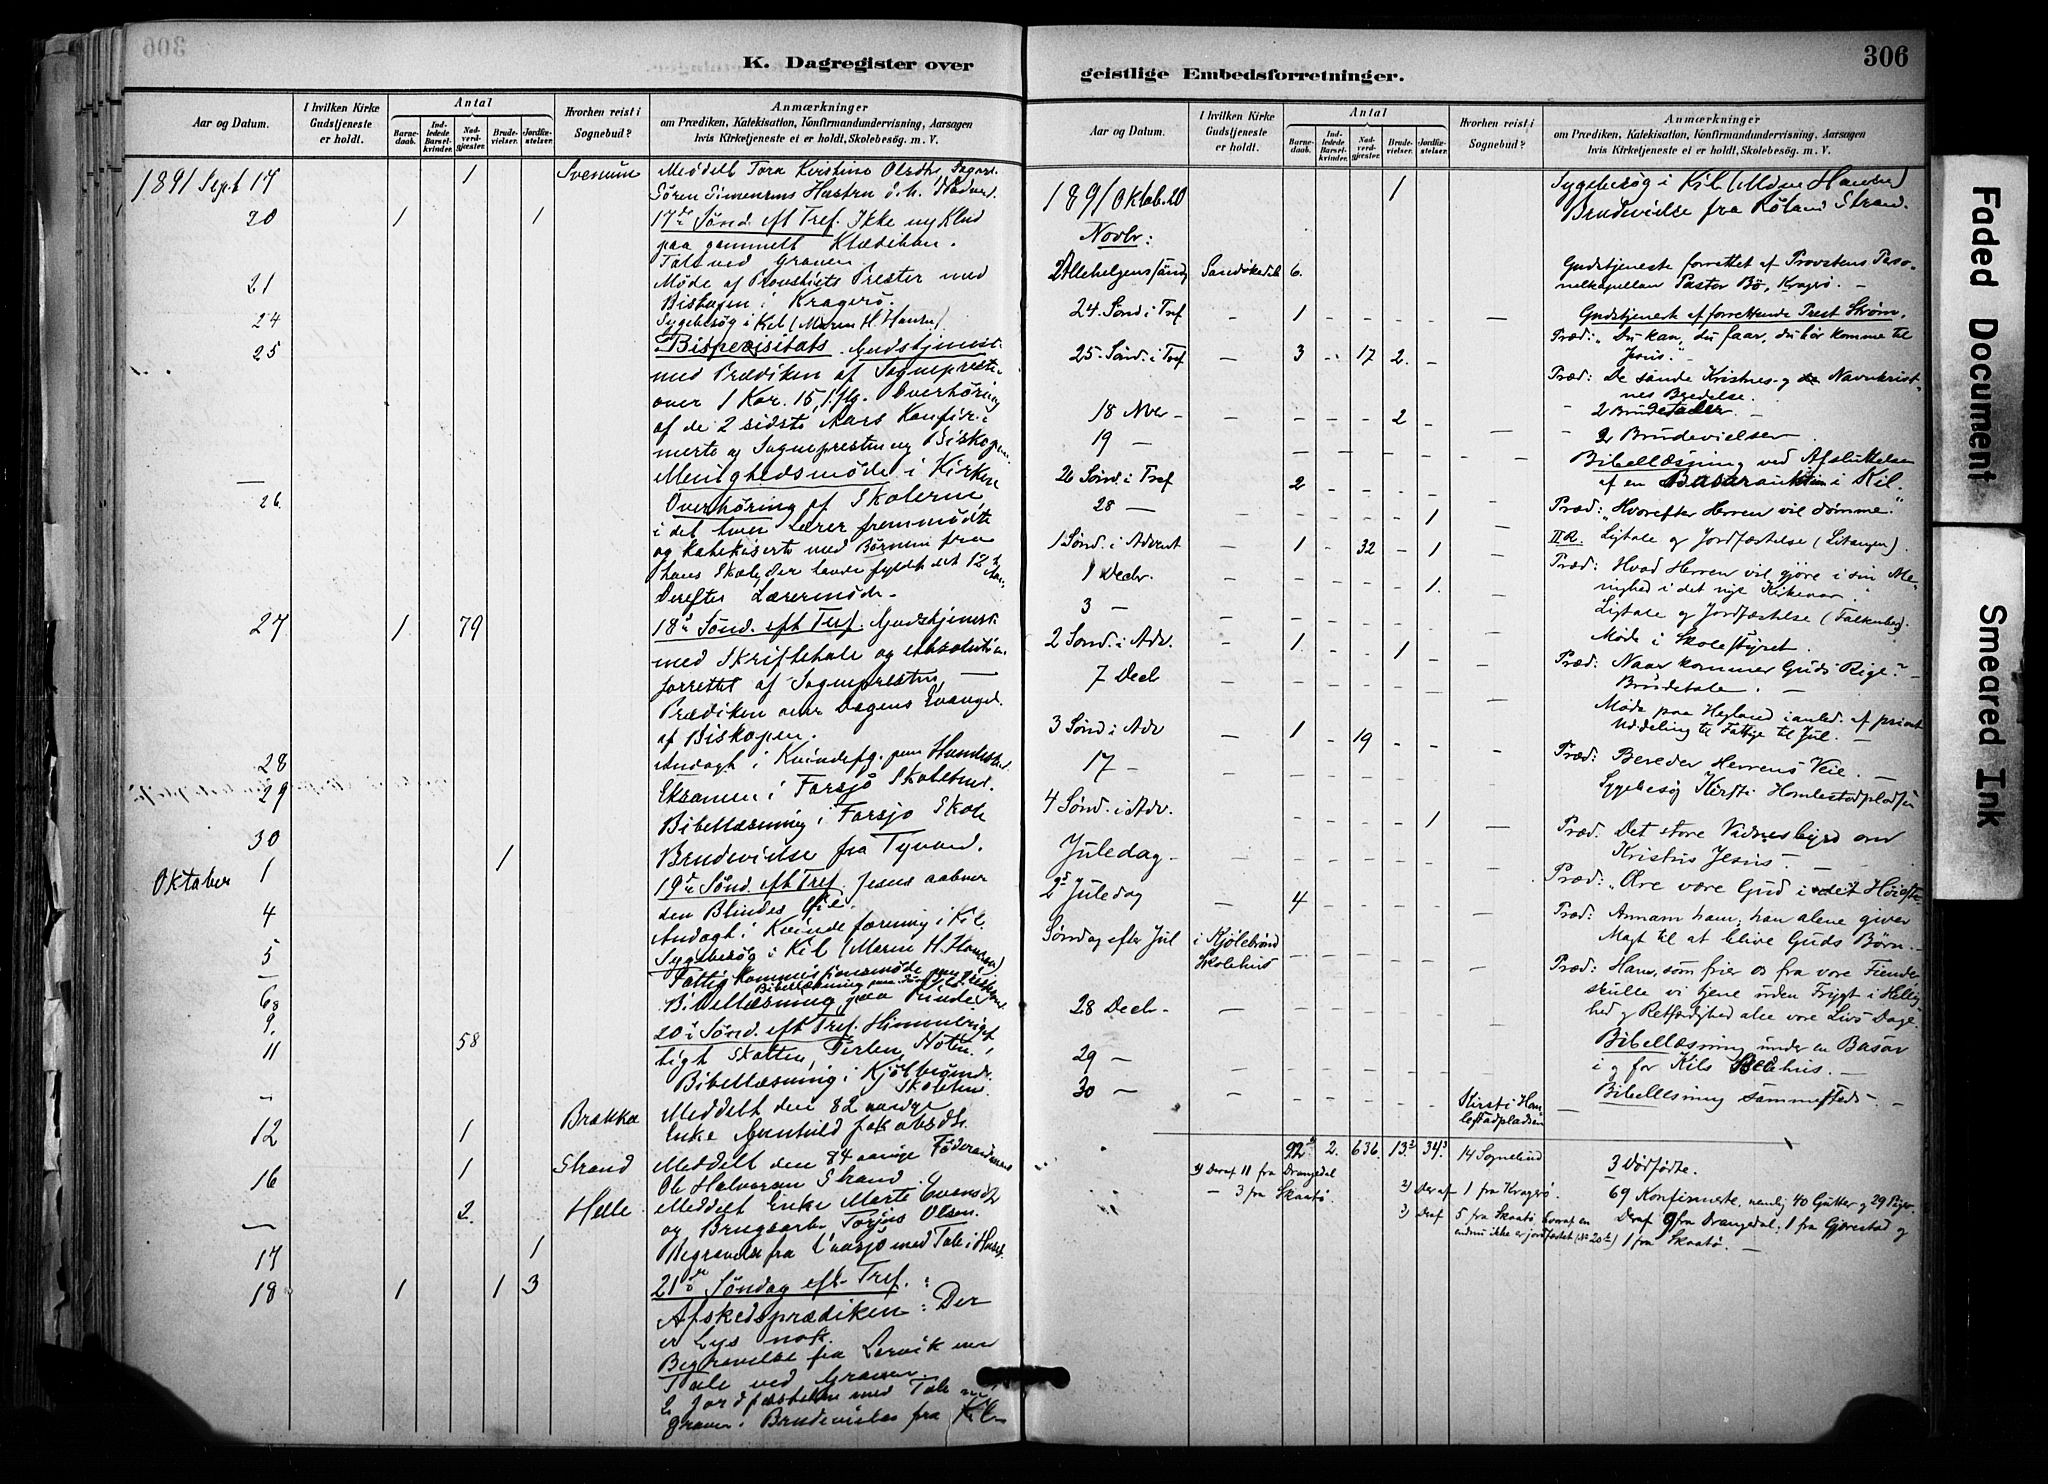 306
K. Dagregister over
geistlige Embedsforretninger.
306
Faded Document
Smeared Ink
Aar og Datum.
I hvilken Kirke Gudstjeneste er holdt.
Antal
Barne-daab.
Ind-ledede Barsel-kvinder.
Nad-verd-gjæster.
Brude-vielser.
Jordfæ-stelser.
Hvorhen reist i Sognebud?
Anmærkninger
om Prædiken, Katekisation, Konfirmandundervisning, Aarsagen
hvis Kirketjeneste ei er holdt, Skolebesøg. m. V.
1891 Sept 17 1 Meddelt Tora Kristine Olsdtr.
Sören Simensens
20 1 1 17de Sønd. eft Tref. Ikke ny Klud
paa gammelt Klædebon.
Tale ved Graven.
21 Møde af Provstiets Prester med
Biskopen i Kragerø.
24 Sygebesøg i Kil (Maren H. Hansen)
25 Bispevisitats. Gudstjeneste
med Prædiken af Sognepresten
over 1 Kor. 15, 1. flg. Overhøring
af de 2 sidste Aars Konfir-
merte og Sognepresten og Biskopen
Menighedsmøde i Kirken
26. Overhøring af Skolerne
i det hver Lærer fremmødte
og katekiserte med Børnene fra
hans Skole, der havde fyldt det 12te
Derefter Lærermøde.
27 1 79 18de Sønd. eft Tref. Gudstjeneste
med Skriftetale og Absolution
forrettet af Sognepresten, —
Prædiken over Dagens Evangel.
af Biskopen.
28 Andagt i Kvindefg.
29 Eksamen i Farsjø Skolehus.
Bibellæsning i Farsjø Skole
30 1 Brudevielse fra Tyvand.
Oktober 1 19de Sønd. eft Tref. Jesus aabner
4 den Blindes Øie.
Andagt i Kvindeforening i Kil.
5 Sygebesøg i Kil (Maren H. Hansen)
— Fattigkommissionsmøde
6 Bibellæsning paa
9.
11 58 20de Sønd. eft Tref. Himmeriget
ligt Skatten, Perlen, Noten.
— Bibellæsning i Kjølbrønds
Skolehus.
12 1 Brækka Meddelt den 82 aarige
Enke Gunhild Jakobsdtr.
16 1 Strand Meddelt den 84 aarige Føderaadsmand
Ole Halvorsen Strand.
— 2. Helle Meddelt Enke Marte Evensdtr
og Brugsarbr Torjus Olsen.
17 1 Begravelse fra med Tale i Huset.
18 1 1 3 21de Søndag eft Tref.:
Afskedsprædiken: Der
er Lys nok.
Begravelse fra Lervik med
Tale ved Graven.
2 Jordfæstelser med Tale ved
Graven. Brudevielse fra Kil
Aar og Datum.
I hvilken Kirke Gudstjeneste er holdt.
Antal
Barne-daab.
Ind-ledede Barsel-kvinder.
Nad-verd-gjæster.
Brude-vielser.
Jordfæ-stelser.
Hvorhen reist i Sognebud?
Anmærkninger
om Prædiken, Katekisation, Konfirmandundervisning, Aarsagen
hvis Kirketjeneste ei er holdt, Skolebesøg. m. V.
1891 Oktob. 20 1 Sygebesøg i Kil (Maren Hansen)
Brudevielse fra Strand.
Novbr:
Allehelgenssønd Sandøkedal 6. Gudstjeneste forrettet af Provstens Perso-
nelkapellan Pastor Bö, Kragerø. —
24. Sönd i Tref — 1 Gudstjenest af forrettende Prest Strøm.
25. Sönd. i Tref — 3 17 2. Præd: "Du kan, du faar, du bør komme til
Jesus."
Præd: De sande Kristnes og de Navnkrist-
nes Bredelse.
18 Nvbr — 2 2 Brudetaler —
19 — 2 Brudevielser.
Bibellæsning ved Afslutfelsen
26 Sönd. i Tref 2 af en i Kil.
28 — 1 Præd: "Hvorefter Herren vil dømme"
1 Sönd. i Advent — 1 32 1 II R. Ligtale og Jordfæstelse (Litangen).
1 Decbr. 1. Præd: Hvad Herren vil gjøre i sin Me-
nighed i det nye Kirkeaar."
3 — Ligtale og Jordfæstelse (Falkenberg).
2 Sönd. i Adv. — 1. 1 Møde i Skolestyret.
7 Decb Præd: Naar kommer Guds Rige?
Brudetale. —
3 Sönd i Adv — 1 19 Møde paa Heglund i anled. af privat
Uddeling til Fattige til Jul. —
17 — Præd: Bereder Herrens Veie. —
Sygebesøg Kirsti Homlestadpladsen
4 Sönd. i Adv. 1 Præd. Det store Vidnesbyrd om
Kristus Jesus. —
Juledag — Præd: "Ære være Gud i det Høieste
2den Juledag — 4 Præd: Annam ham; han alene giver
Magt til at blive Guds Børn. —
Søndag efter Jul i Kjølebrønd Skolehus Præd: Ham, som frier os fra vore Fiender
skulle vi tjene uden Frygt i Hellig-
28 Decb — hed og Retfærdighed alle vore Livs Dage.
29 — Bibellæsning under en Basar
i og for Kils Bedehus. —
30 — Kirsti Hom-lestadpladsen Bibellæsning sammesteds —
92 2. 636. 13 34 14 Sognebud 3 Dødfødte.
1) Deraf 11 fra Drangedal
— 3 fra Skaatø.
2) Deraf 1 fra Kragerø.
3) Deraf 5 fra Skaatø hvoraf en
endnu ikke er jordfæstet (No 20)
69 Konfirmerte, nemlig 40 Gutter og 29 Piger.
Deraf 9 fra Drangedal, 1 fra Gjerestad og
1 fra Skaatø. —